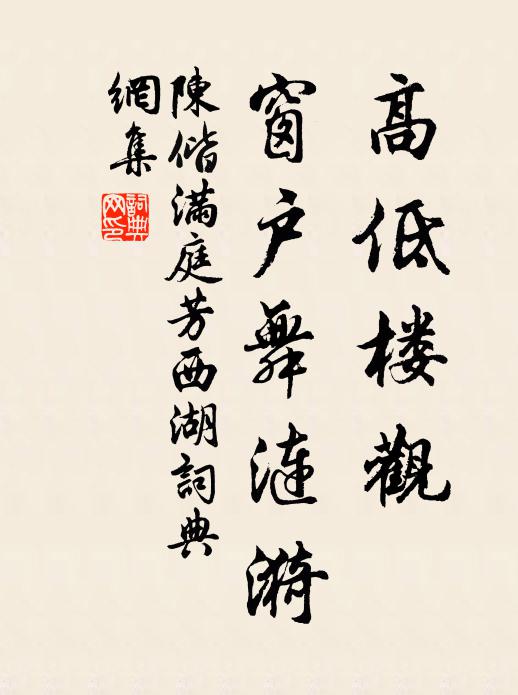 高低楼觀
窗户舞漣漪
陳偕滿庭芳西湖詞典
網集
詞典網印